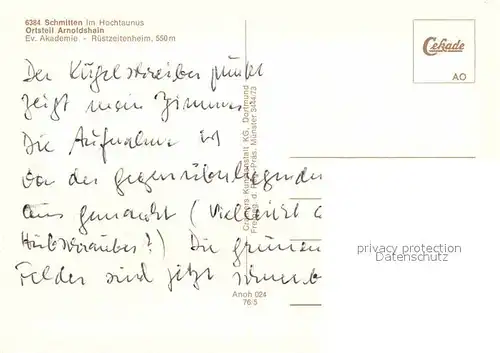 6384 Schmitten im Hochtaunus
Ortsteil Arnoldshain
Ev. Akademie - Rüstzeitenheim, 550m
Cekade
AO
Der Kugelschreiber punkt
zeigt mein Zimmer
Die Aufnahme ist
von der gegenüberliegenden
aus gemacht (Vielleicht
Hubschrauber?) Die grünen
Felder sind jetzt
Cramers Kunstanstalt KG, Dortmund
Freigeg. d. Reg.-Präs. Münster
privacy protection
Datenschutz
Anoh 024
76/5